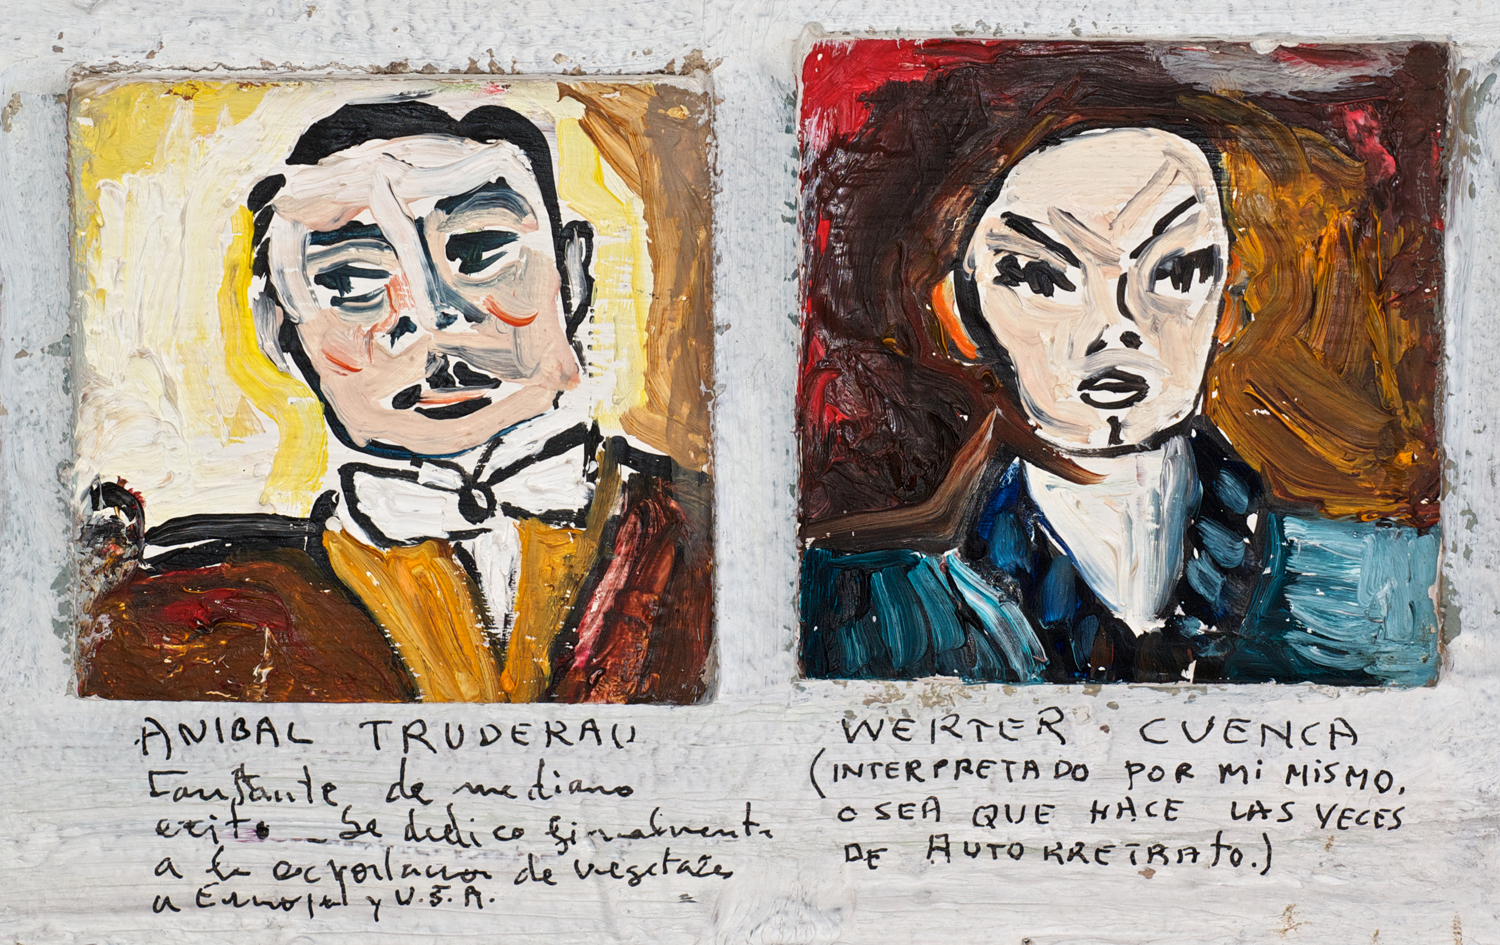 ANIBAL TRUDERAU
Cantante de mediano
exito - Se dedico finalmente
a la exportacion de vegetales
a Europa y U.S.A.
WERTER CUENCA
(INTERPRETADO POR MI MISMO,
O SEA QUE HACE LAS VECES
DE AUTORRETRATO.)